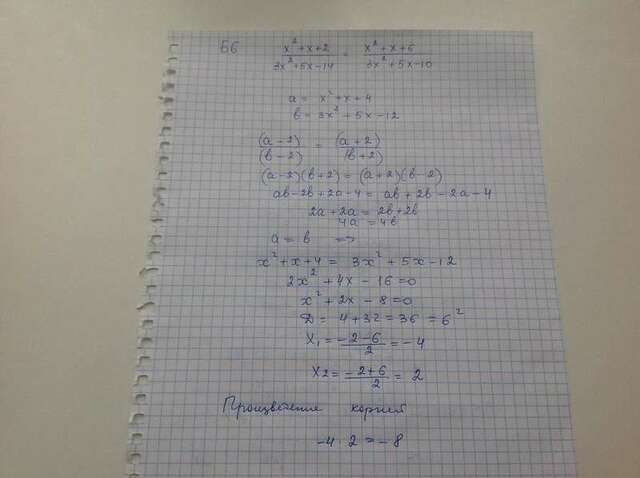 Б6 (x²+x+2)/(3x²+5x-14) = (x²+x+6)/(3x²+5x-10)
a = x²+x+4
b = 3x²+5x-12
(a-2)/(b-2) = (a+2)/(b+2)
(a-2)(b+2) = (a+2)(b-2)
ab-2b+2a-4 = ab+2b-2a-4
2a+2a = 2b+2b
4a = 4b
a = b =>
x²+x+4 = 3x²+5x-12
2x²+4x-16=0
x²+2x-8=0
D = 4+32=36 = 6²
x₁ = (-2-6)/2 = -4
x₂ = (-2+6)/2 = 2
Произведение корней
-4·2=-8